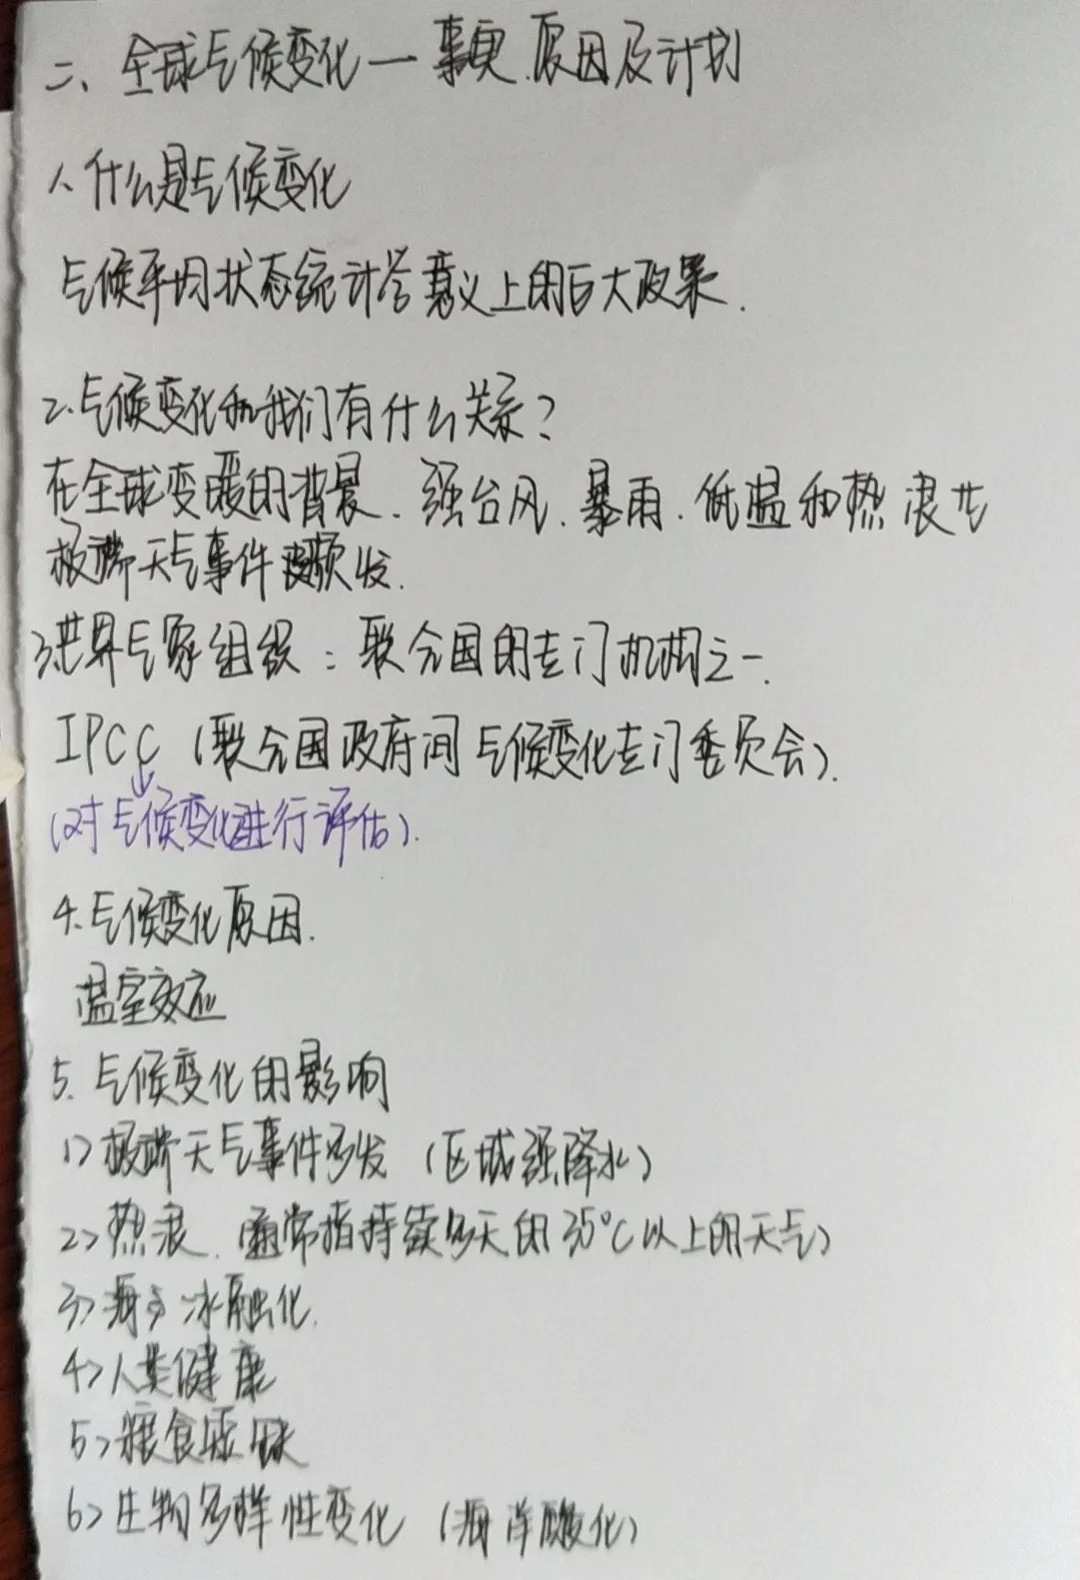 二、全球气候变化一事实.原因及计划
1.什么是气候变化
气候平均状态统计学意义上的巨大改变.
2.气候变化和我们有什么关系?
在全球变暖的背景.强台风.暴雨.低温和热浪等
极端天气事件频发.
3.世界气象组织:联合国的专门机构之一.
IPCC(联合国政府间气候变化专门委员会).
(对气候变化进行评估).
4.气候变化原因.
温室效应
5.气候变化的影响
1>极端天气事件多发(区域强降水)
2>热浪.通常指持续多天的35℃以上的天气)
3>海冰融化.
4>人类健康
5>粮食短缺
6>生物多样性变化(海洋酸化)